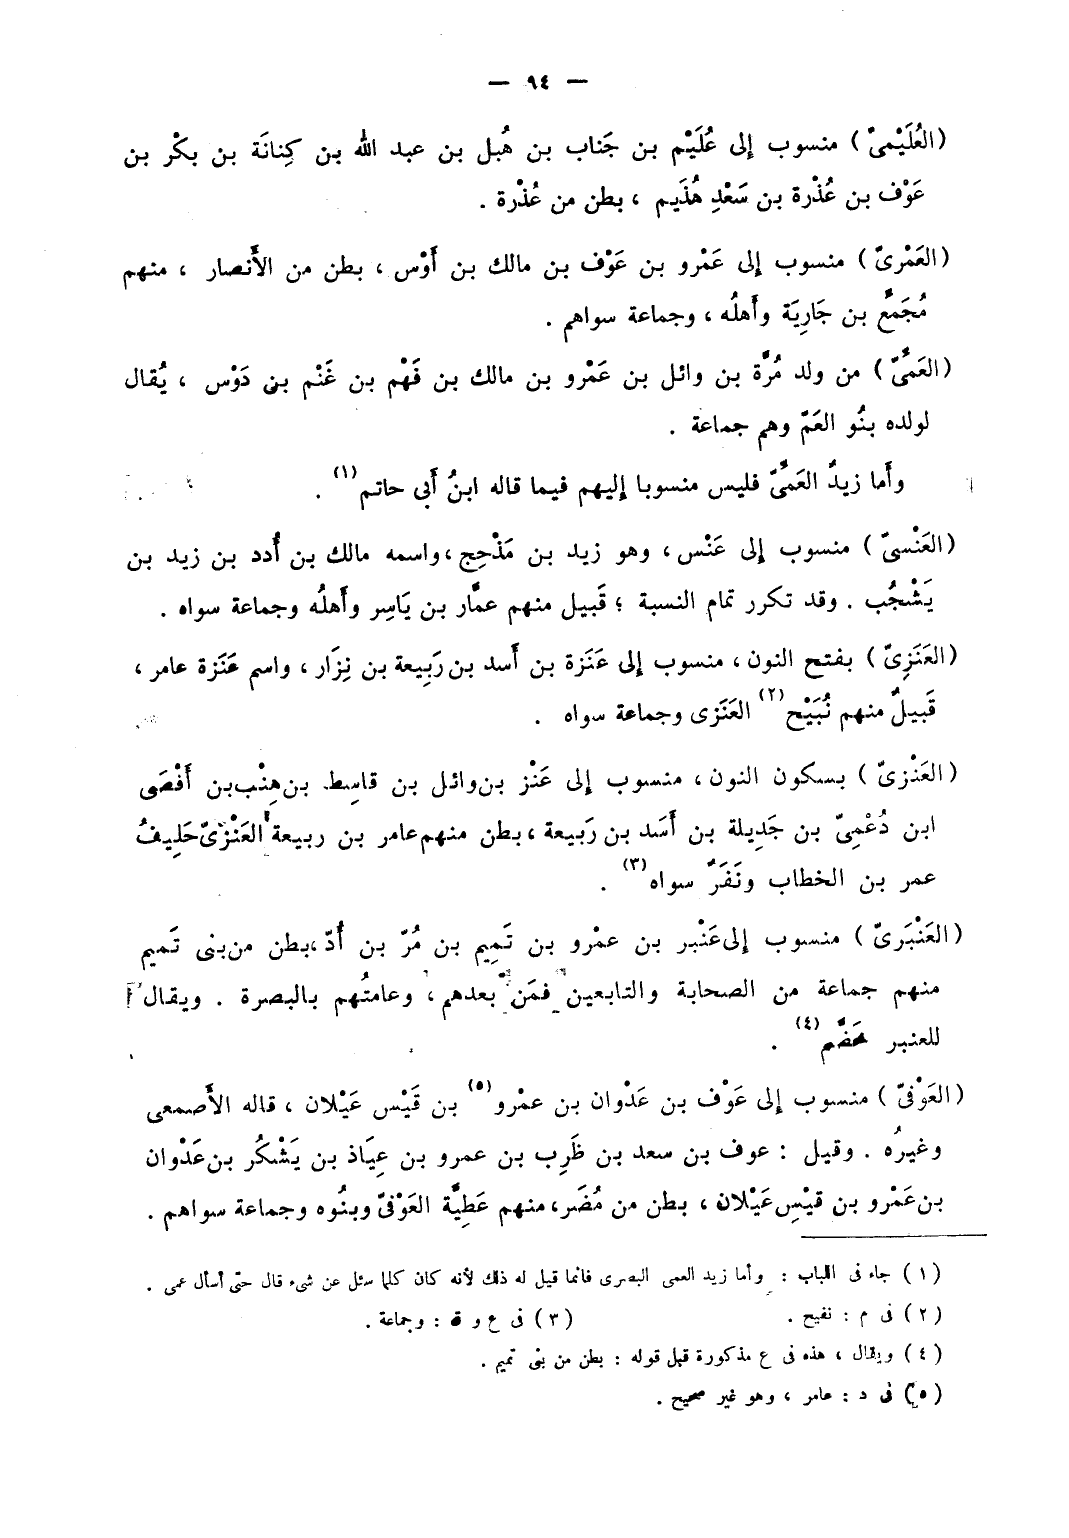 — ٩٤ —
(العُلَيْمىّ) منسوب إلى عُلَيْم بن جَناب بن هُبل بن عبد الله بن كِنانَة بن بكْر بن
عَوْف بن عُذْرة بن سَعْدِ هُذَيم ، بطن من عُذْرة .
(العَمْرىّ) منسوب إلى عَمْرو بن عَوْف بن مالك بن أَوْس ، بطن من الأَنصار ، منهم
مُجَمِّع بن جَارِيَة وأَهلُه ، وجماعة سواهم .
(العَمِّىّ) من ولد مُرَّة بن وائل بن عَمْرو بن مالك بن فَهْم بن غَنْم بن دَوْس ، يُقال
لولده بنُو العَمّ وهم جماعة .
وأَما زيدٌ العَمِّىّ فليس منسوبا إليهم فيما قاله ابنُ أَبي حاتم (١) .
(العَنْسىّ) منسوب إلى عَنْس ، وهو زيد بن مَذْحِج ، واسمه مالك بن أُدد بن زيد بن
يَشْجُب . وقد تكرر تمام النسبة ؛ قَبيل منهم عمَّار بن يَاسِر وأَهلُه وجماعة سواه .
(العَنَزِىّ) بفتح النون ، منسوب إلى عَنَزة بن أَسد بن رَبِيعة بن نِزَار ، واسم عَنَزة عامر ،
قَبيلٌ منهم نُبَيْح (٢) العَنَزى وجماعة سواه .
(العَنْزىّ) بسكون النون ، منسوب إلى عَنْز بن وائل بن قاسِط بن هِنْب بن أَفْصَى
ابن دُعْمِىّ بن جَدِيلة بن أَسَد بن رَبيعة ، بطن منهم عامر بن ربيعة العَنْزىّ حَلِيفُ
عمر بن الخطاب ونَفَرٌ سواه (٣) .
(العَنْبَرىّ) منسوب إلى عَنْبر بن عمْرو بن تَمِيم بن مُرّ بن أُدّ ، بطن من بنى تَميم
منهم جماعة من الصحابة والتابعين فمَن بعدهم ، وعامتُهم بالبصرة . ويقال
للعنبر خَضَّم (٤) .
(العَوْفىّ) منسوب إلى عَوْف بن عَدْوان بن عمْرو (٥) بن قَيْس عَيْلان ، قاله الأَصمعى
وغيرُه . وقيل : عوف بن سعد بن ظَرِب بن عمرو بن عِيَاذ بن يَشْكُر بن عَدْوان
بن عَمْرو بن قيْس عَيْلان ، بطن من مُضَر ، منهم عَطِيَّة العَوْفىّ وبنُوه وجماعة سواهم .
(١) جاء فى اللباب : وأما زيد العمى البصرى فانما قيل له ذلك لأنه كان كلما سئل عن شىء قال حتى أسأل عمى .
(٢) فى م : نفيح . (٣) فى ع و ق : وجماعة .
(٤) ويقال ، هذه فى ع مذكورة قبل قوله : بطن من بنى تميم .
(٥) فى د : عامر ، وهو غير صحيح .